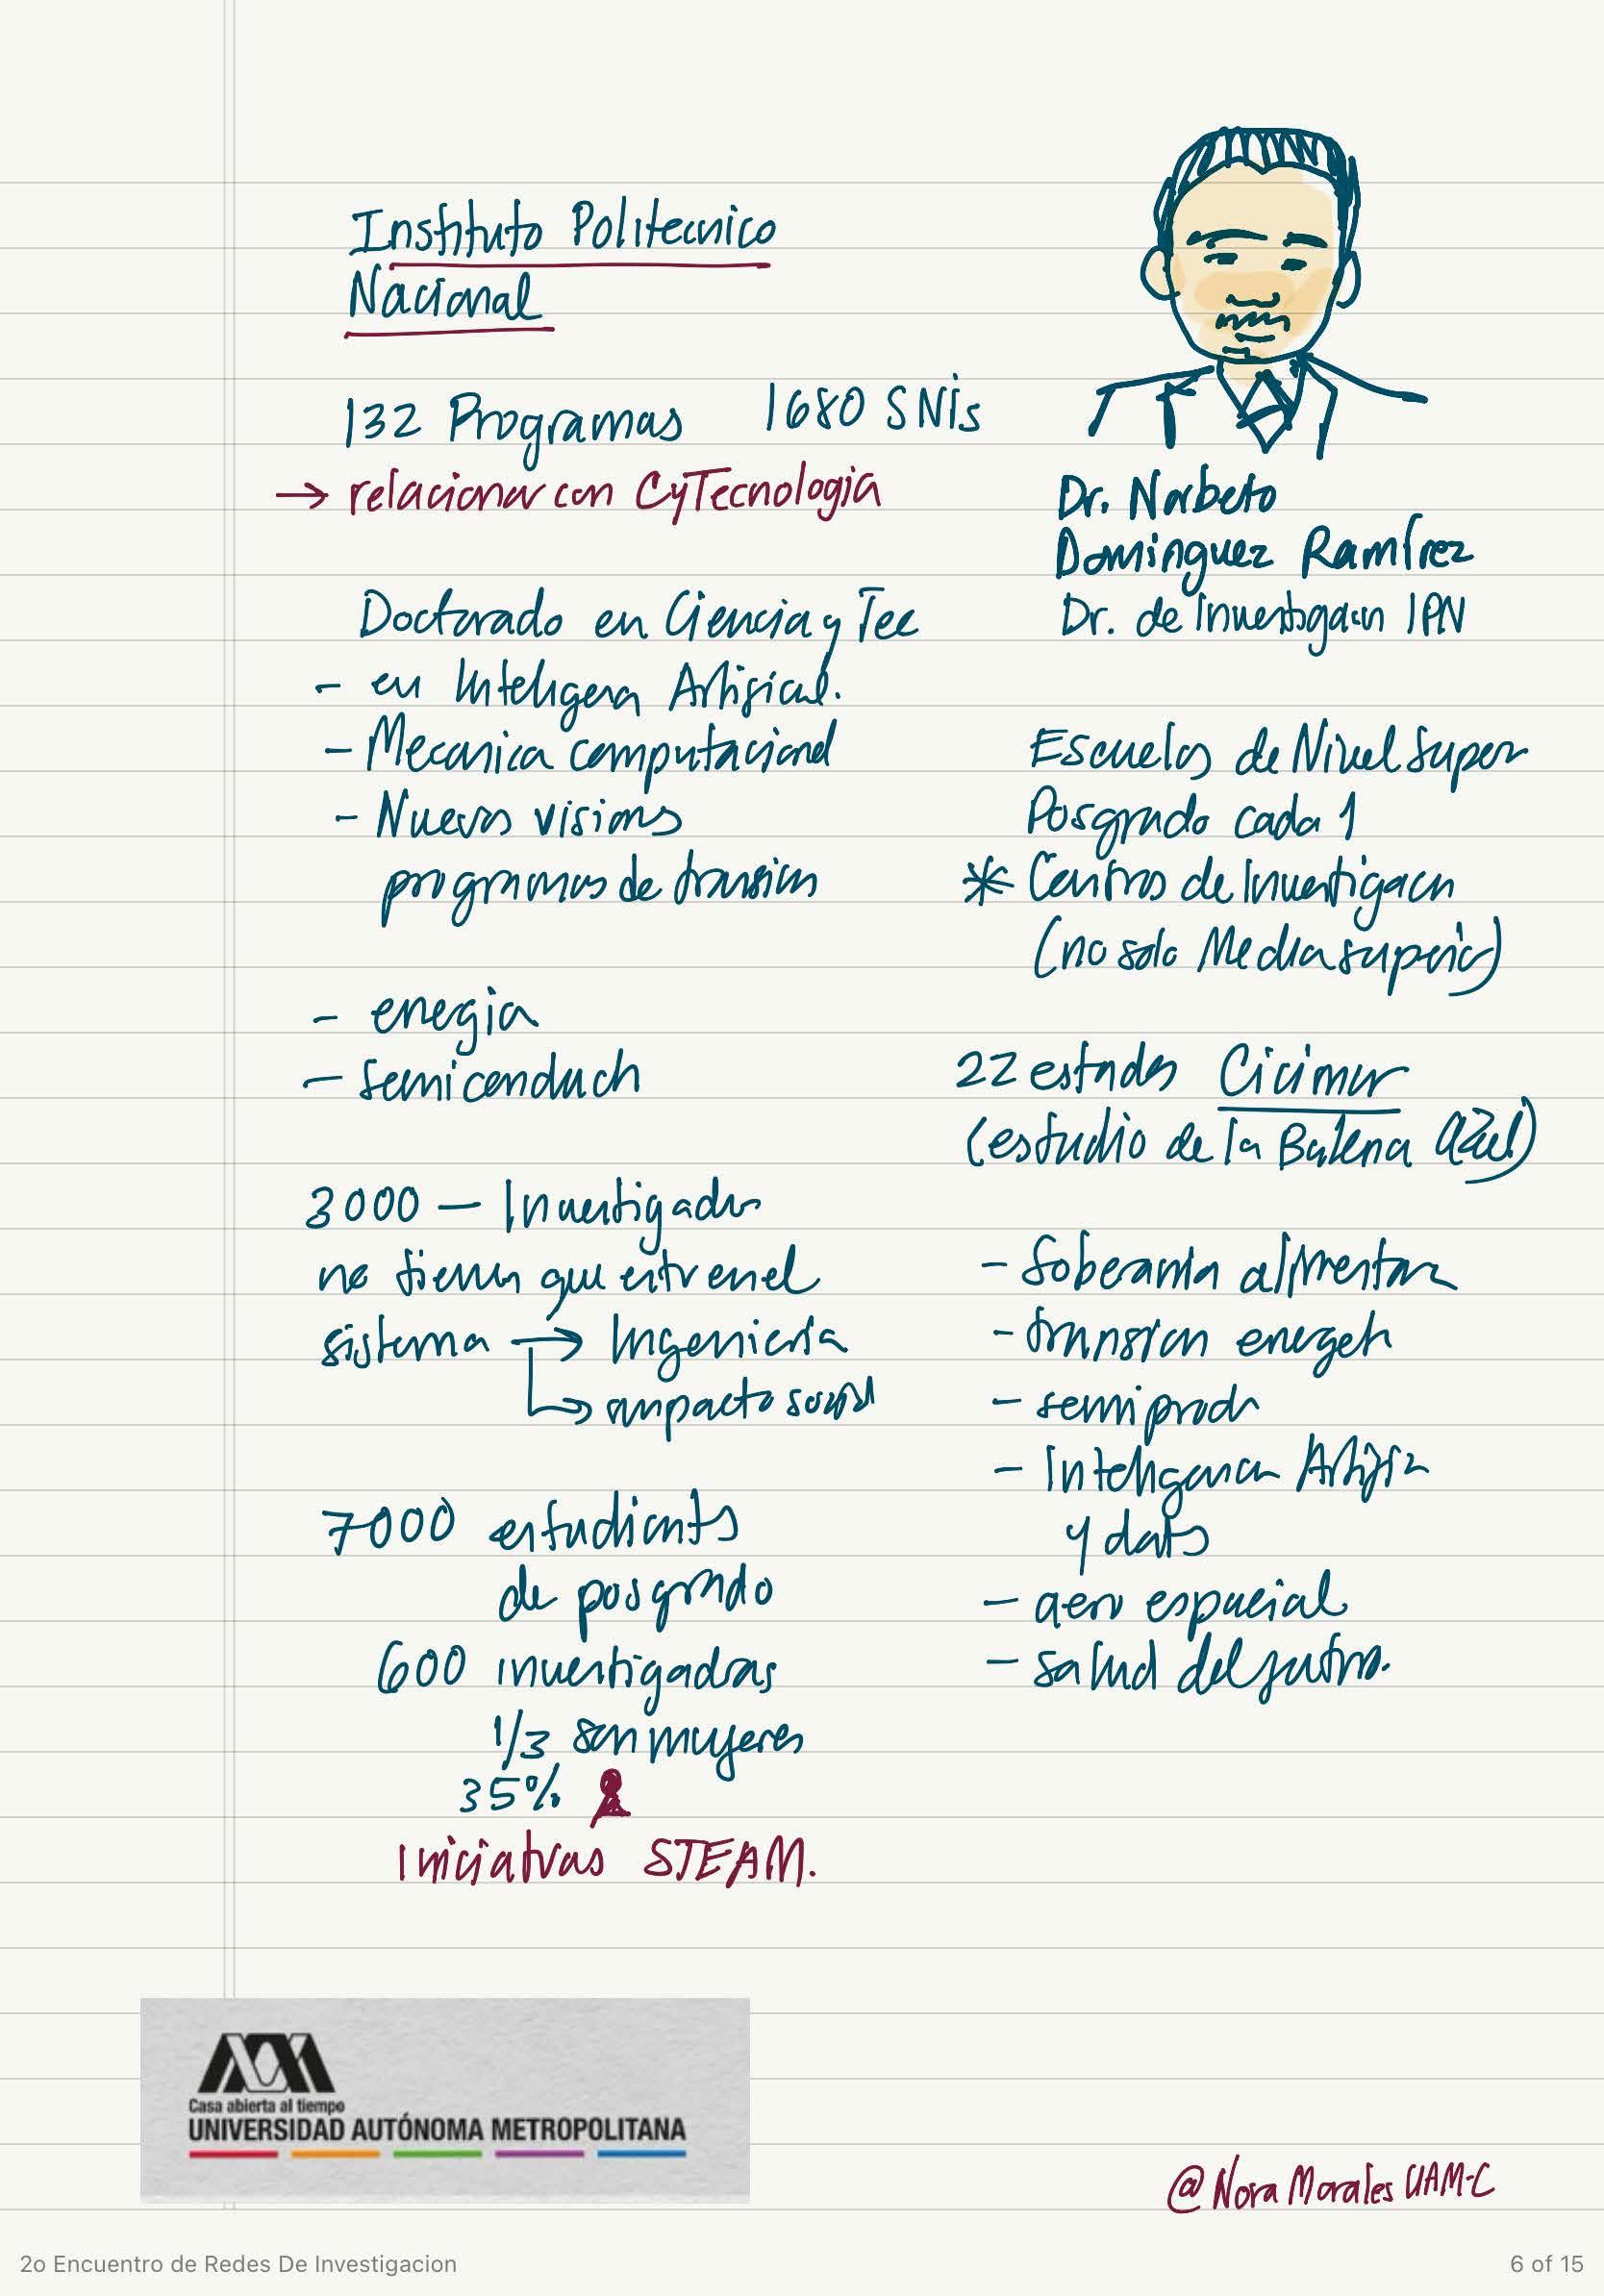 Instituto Politecnico
Nacional
132 Programas 1680 SNIs
→ relacionar con CyTecnologia
Doctorado en Ciencia y Tec
- en Inteligena Artificial.
- Mecanica computacional
- Nuevas visions
programas de
- energia
- semiconduch
3000 — Investigadrs
no tienen que entr en el
sistema → Ingenieria
↳ impacto social
7000 estudiants
de posgrado
600 investigadras
1/3 son mujeres
35%
Iniciativas STEAM.
Dr. Norbeto
Dominguez Ramírez
Dr. de Investigacin IPN
Escuelas de Nivel Super
Posgrado cada 1
* Centros de Investigacn
(no solo Media superior)
22 estados Cicimar
(estudio de la Balena azul)
- Soberania alimentar
- transicn energet
- semiprod
- Inteligenca Artific
y dats
- aero espacial
- salud del futro.
Casa abierta al tiempo
UNIVERSIDAD AUTÓNOMA METROPOLITANA
@Nora Morales UAM-C
2o Encuentro de Redes De Investigacion
6 of 15